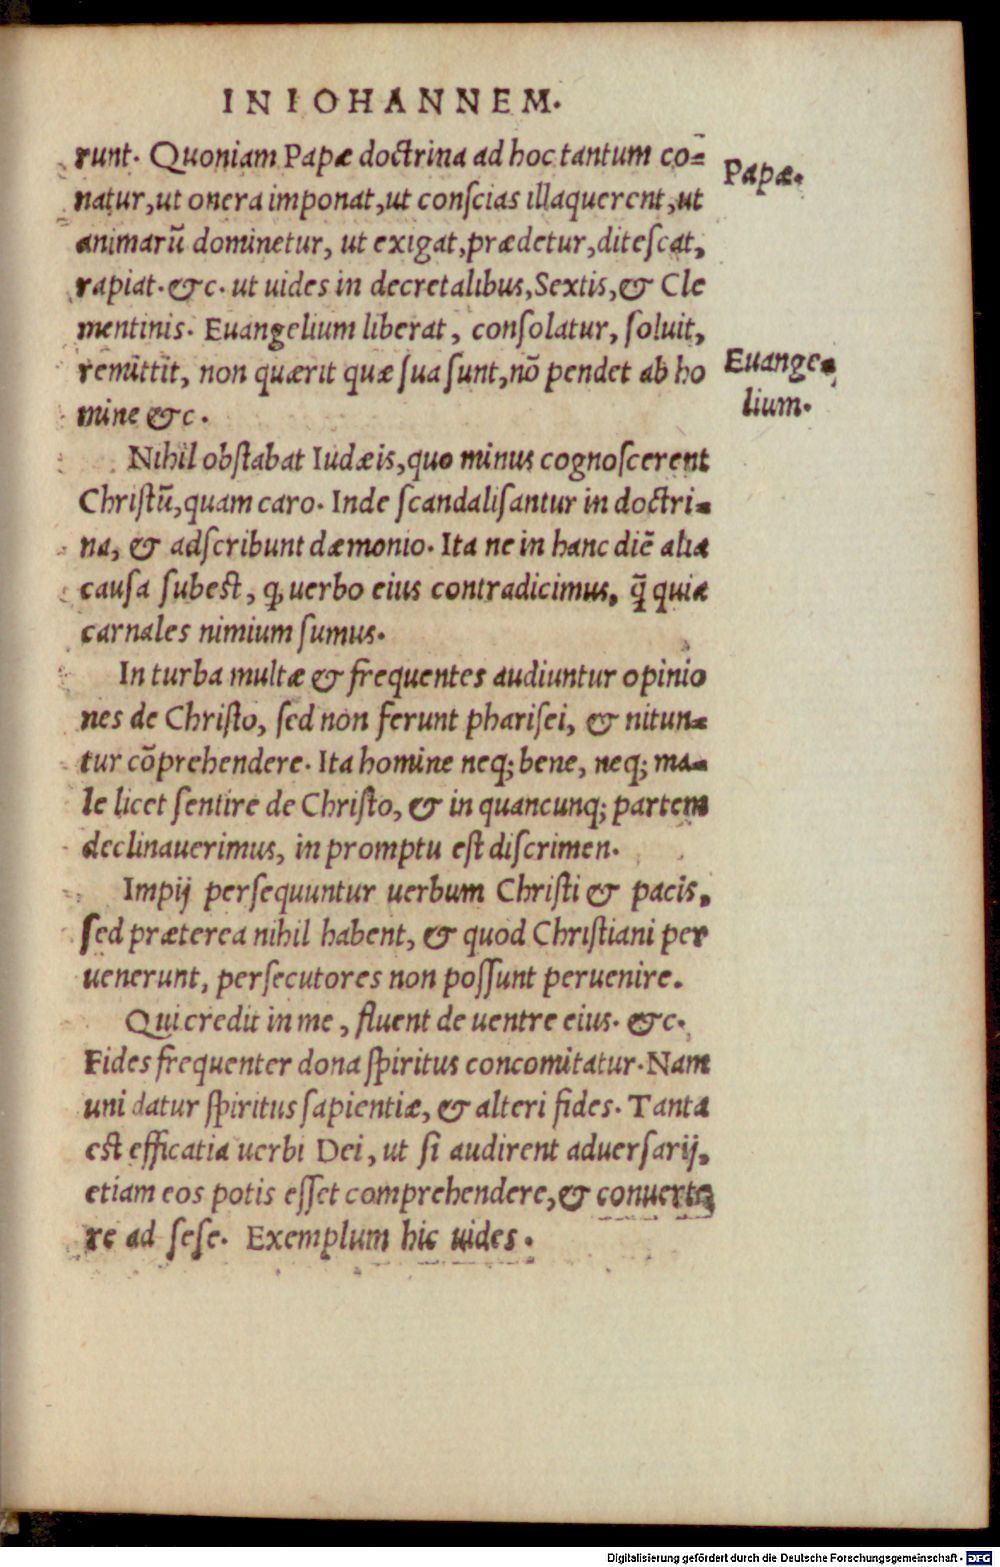 IN IOHANNEM.
runt. Quoniam Papæ doctrina ad hoc tantum co-
natur, ut onera imponat, ut conſcias illaquerent, ut
animarū dominetur, ut exigat, prædetur, diteſcat,
rapiat. &c. ut uides in decretalibus, Sextis, & Cle
mentinis. Euangelium liberat, conſolatur, ſoluit,
remittit, non quærit quæ ſua ſunt, nō pendet ab ho
mine &c.
Papæ.
Euange-
lium.
Nihil obſtabat Iudæis, quo minus cognoſcerent
Chriſtū, quam caro. Inde ſcandaliſantur in doctri-
na, & adſcribunt dæmonio. Ita ne in hanc diē alia
cauſa ſubeſt, ꝙ uerbo eius contradicimus, q̄ quia
carnales nimium ſumus.
In turba multæ & frequentes audiuntur opinio
nes de Chriſto, ſed non ferunt phariſei, & nitun-
tur cōprehendere. Ita homine neq; bene, neq; ma-
le licet ſentire de Chriſto, & in quancunq; partem
declinauerimus, in promptu eſt diſcrimen.
Impij perſequuntur uerbum Chriſti & pacis,
ſed præterea nihil habent, & quod Chriſtiani per
uenerunt, perſecutores non poſſunt peruenire.
Qui credit in me, fluent de uentre eius. &c.
Fides frequenter dona ſpiritus concomitatur. Nam
uni datur ſpiritus ſapientiæ, & alteri fides. Tanta
eſt efficatia uerbi Dei, ut ſi audirent aduerſarij,
etiam eos potis eſſet comprehendere, & conuerte
re ad ſeſe. Exemplum hic uides.
Digitalisierung gefördert durch die Deutsche Forschungsgemeinschaft - DFG